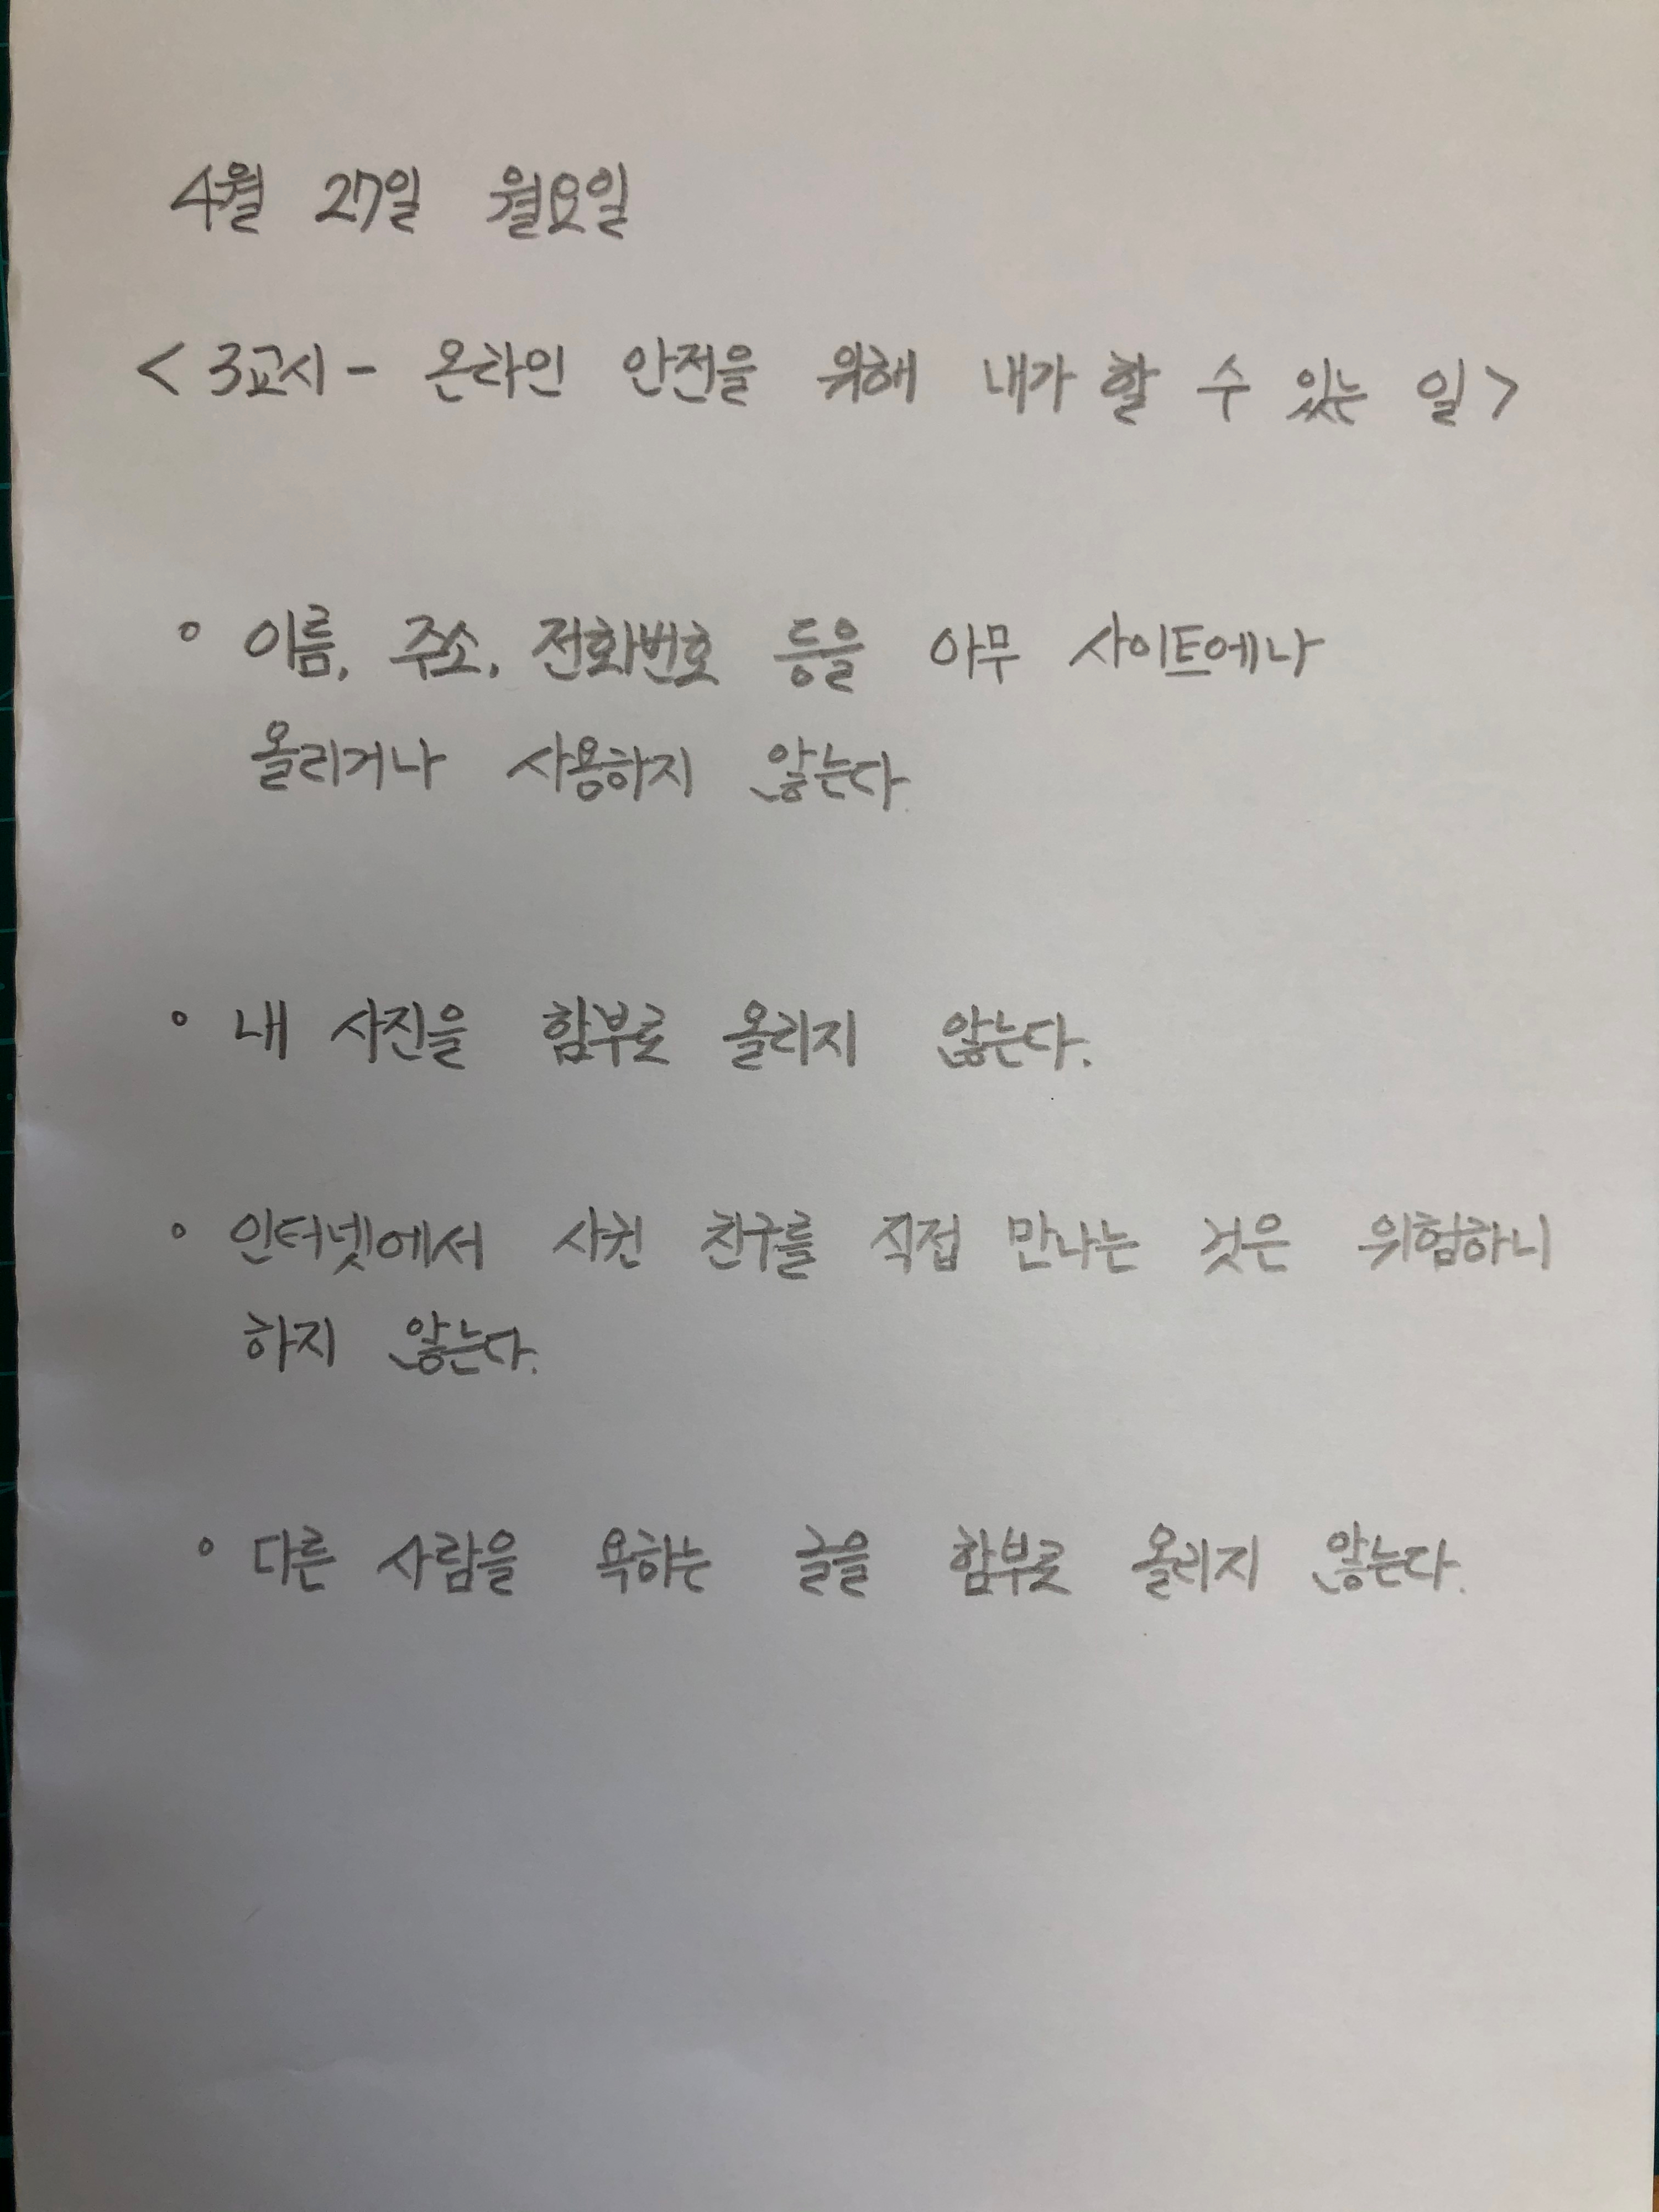 4월 27일 월요일
< 3교시 - 온라인 안전을 위해 내가 할 수 있는 일 >
° 이름, 주소, 전화번호 등을 아무 사이트에나
올리거나 사용하지 않는다.
° 내 사진을 함부로 올리지 않는다.
° 인터넷에서 사귄 친구를 직접 만나는 것은 위험하니
하지 않는다.
° 다른 사람을 욕하는 글을 함부로 올리지 않는다.